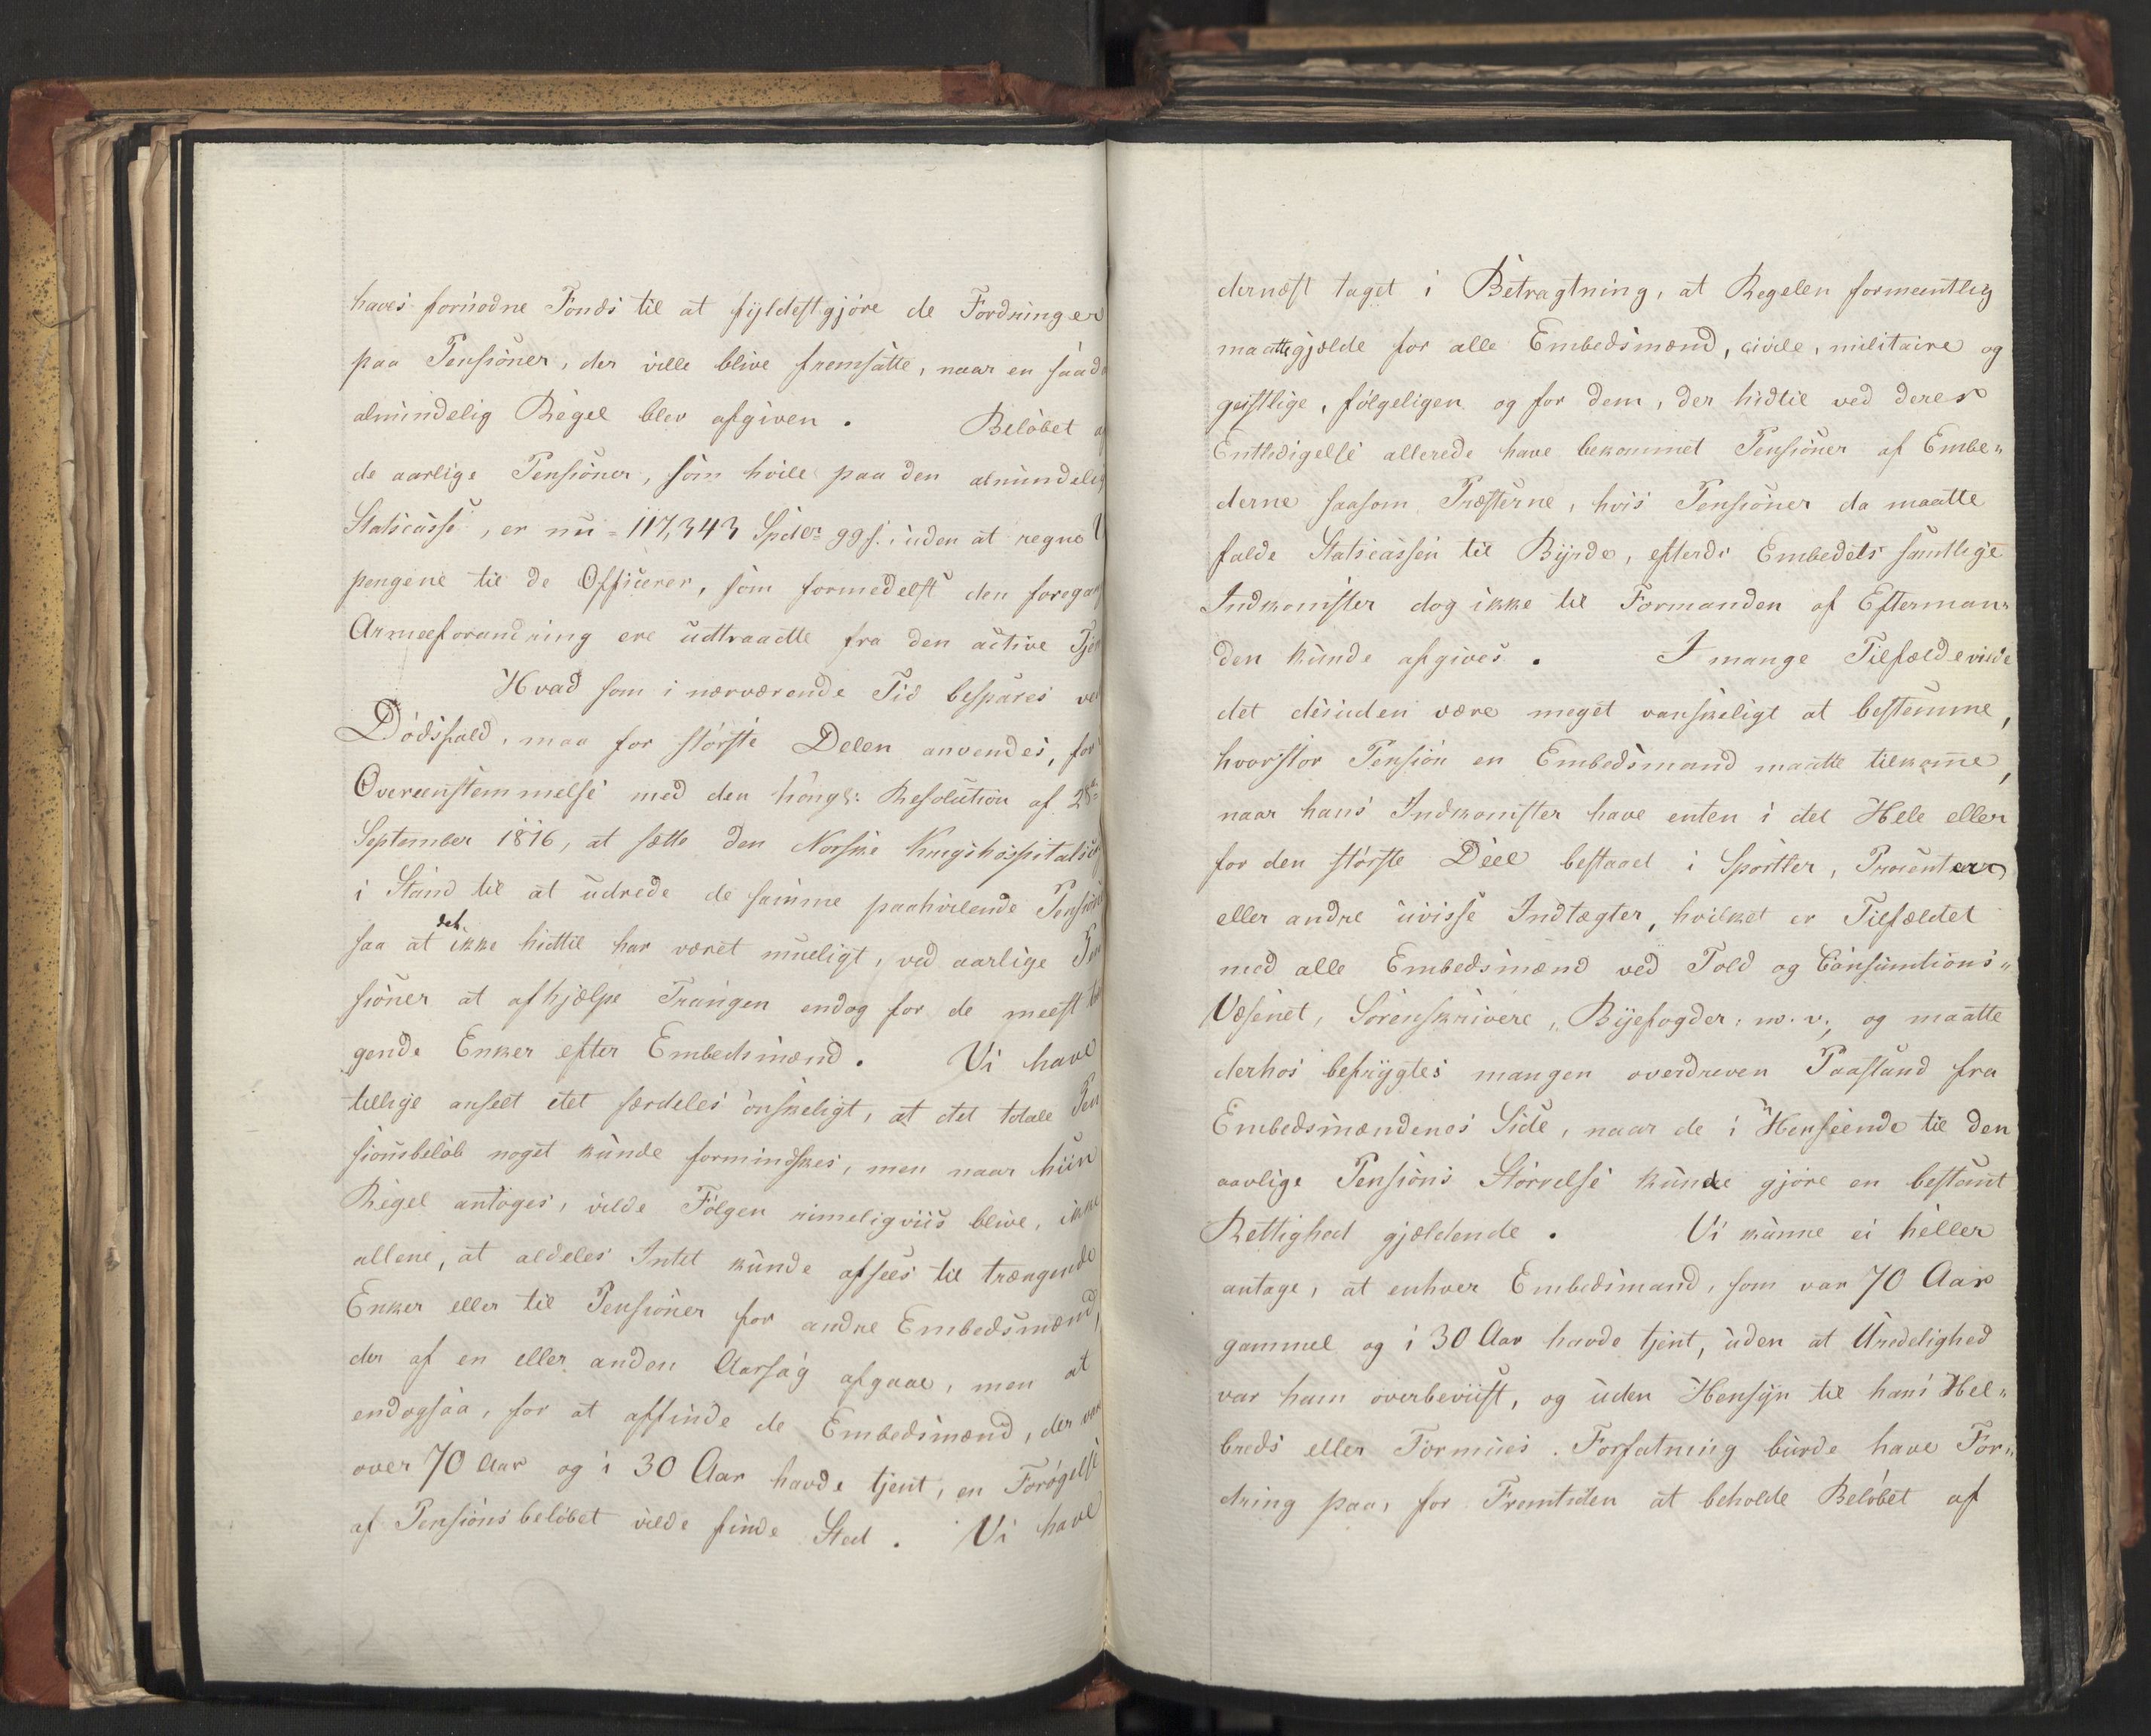 haves fornødne Fonds til at fyldestgjøre de Fordringer
paa Pensioner, der ville blive fremsatte, naar en saad
almindelig Regel blev afgiven. Beløbet a
de aarlige Pensioner, som hvile paa den almindelig
Statscasse, er nu = 117,343 Spdlr 99 s. uden at regne
pengene til de Officerer, som formedelst den foregaa
Armeeforandring ere udtraadte fra den active Tjen
Hvad som i nærværende Tid bespares ved
Dødsfald, maa for største Delen anvendes, for
Overeenstemmelse med den høngl: Resolution af 28de
September 1816, at sætte den Norske Krigshospitals
i Stand til at udrede de samme paahvilende Pension
saa at det ikke hidtil har været mueligt, ved aarlige Pen
sioner at afhjælpe Trangen endog for de meest tr
gende Enker efter Embedsmænd. Vi have
tillige anseet det særdeles ønskeligt, at det totale Pen
sionsbeløb noget kunde formindskes, men naar hiin
Regel antoges, vilde Følgen rimeligviis blive, ikke
allene, at aldeles Intet kunde afsees til trængende
Enker eller til Pensioner for andre Embedsmænd,
der af en eller anden Aarsag afgaae, men at
endogsaa, for at affinde de Embedsmænd, der var
over 70 Aar og i 30 Aar havde tjent, en Forøgelse
af Pensionsbeløbet vilde finde Sted. Vi have
dernæst taget i Betragtning, at Regelen formeentlig
maatte gjælde for alle Embedsmænd, civile, militaire og
geistlige, følgeligen og for dem, der hidtil ved deres
Entledigelse allerede have bekommet Pensioner af Embe„
derne saasom Præsterne, hvis Pensioner da maatte
falde Statscassen til Byrde, efterdi Embedets samtlige
Indkomster dog ikke til Formanden af Efterman„
den kunde afgives. I mange Tilfælde vilde
det desuden være meget vanskeligt at bestemme,
hvorstor Pension en Embedsmand maatte tilkom̅e,
naar hans Indkomster have enten i det Hele eller
for den største Deel bestaaet i Sportler, Procenter
eller andre uvisse Indtægter, hvilket er Tilfældet
med alle Embedsmænd ved Told og Consumtions„
Væsenet, Sorenskrivere, Byefogder, m. v., og maatte
derhos befrygtes mangen overdreven Paastand fra
Embedsmændenes Side, naar de i Henseende til den
aarlige Pensions Størrelse kunde gjøre en bestemt
Rettighed gjældende. Vi kunne ei heller
antage, at enhver Embedsmand, som var 70 Aar
gammel og i 30 Aar havde tjent, uden at Uredelighed
var ham overbeviist, og uden Hensyn til hans Hel„
breds eller Formues Forfatning burde have For„
dring paa, for Fremtiden at beholde Beløbet af